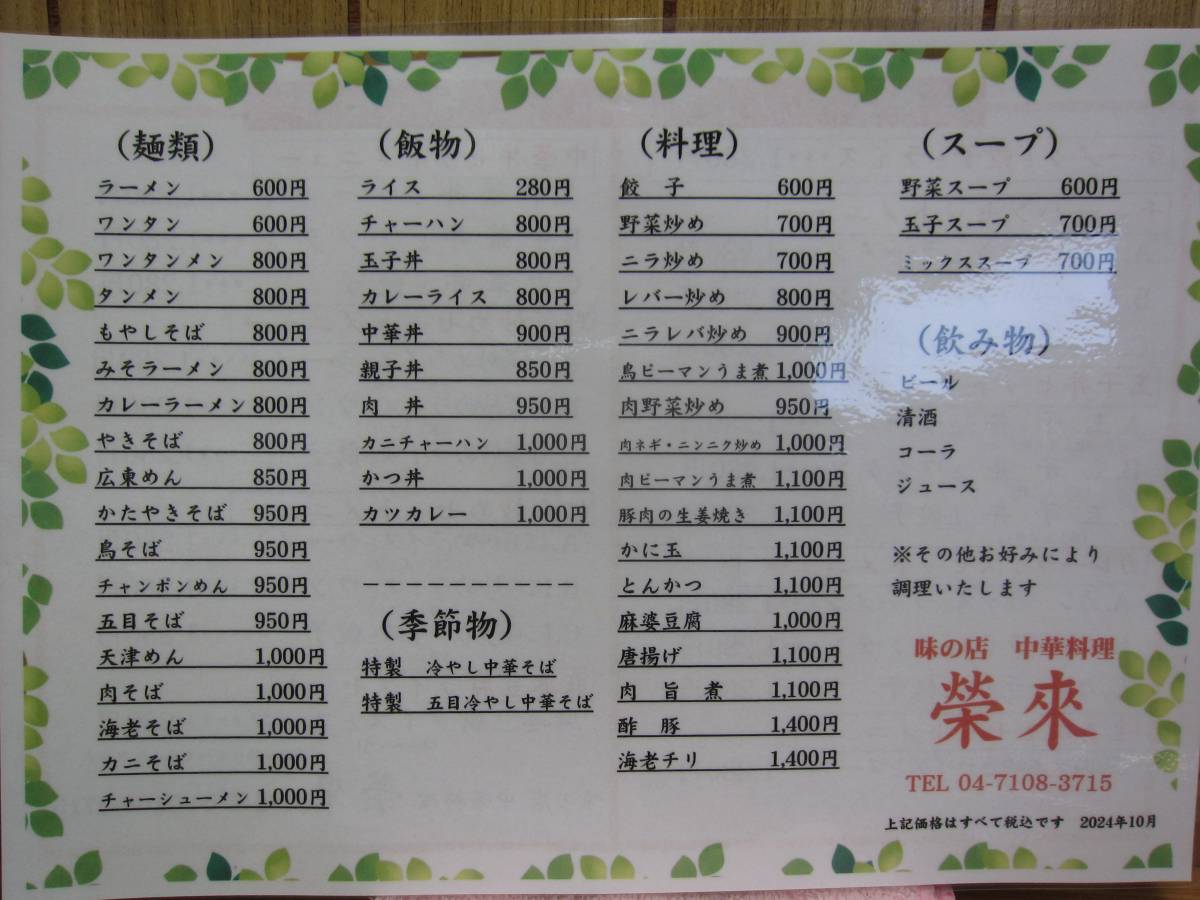 (麺類)
ラーメン 600円
ワンタン 600円
ワンタンメン 800円
タンメン 800円
もやしそば 800円
みそラーメン 800円
カレーラーメン 800円
やきそば 800円
広東めん 850円
かたやきそば 950円
鳥そば 950円
チャンポンめん 950円
五目そば 950円
天津めん 1,000円
肉そば 1,000円
海老そば 1,000円
カニそば 1,000円
チャーシューメン 1,000円
(飯物)
ライス 280円
チャーハン 800円
玉子丼 800円
カレーライス 800円
中華丼 900円
親子丼 850円
肉 丼 950円
カニチャーハン 1,000円
かつ丼 1,000円
カツカレー 1,000円
ーーーーーーーーーー
(季節物)
特製 冷やし中華そば
特製 五目冷やし中華そば
(料理)
餃 子 600円
野菜炒め 700円
ニラ炒め 700円
レバー炒め 800円
ニラレバ炒め 900円
鳥ピーマンうま煮 1,000円
肉野菜炒め 950円
肉ネギ・ニンニク炒め 1,000円
肉ピーマンうま煮 1,100円
豚肉の生姜焼き 1,100円
かに玉 1,100円
とんかつ 1,100円
麻婆豆腐 1,000円
唐揚げ 1,100円
肉 旨 煮 1,100円
酢 豚 1,400円
海老チリ 1,400円
(スープ)
野菜スープ 600円
玉子スープ 700円
ミックススープ 700円
(飲み物)
ビール
清酒
コーラ
ジュース
※その他お好みにより
調理いたします
味の店 中華料理
榮來
TEL 04-7108-3715
上記価格はすべて税込です 2024年10月